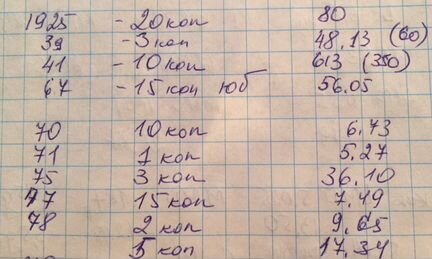 1925 - 20 коп 80
39 - 3 коп 48.13 (60)
41 - 10 коп 613 (350)
67 - 15 коп юб 56.05
70 10 коп 6.73
71 1 коп 5.27
75 3 коп 36.10
77 15 коп 7.49
78 2 коп 9.65
5 коп 17.34